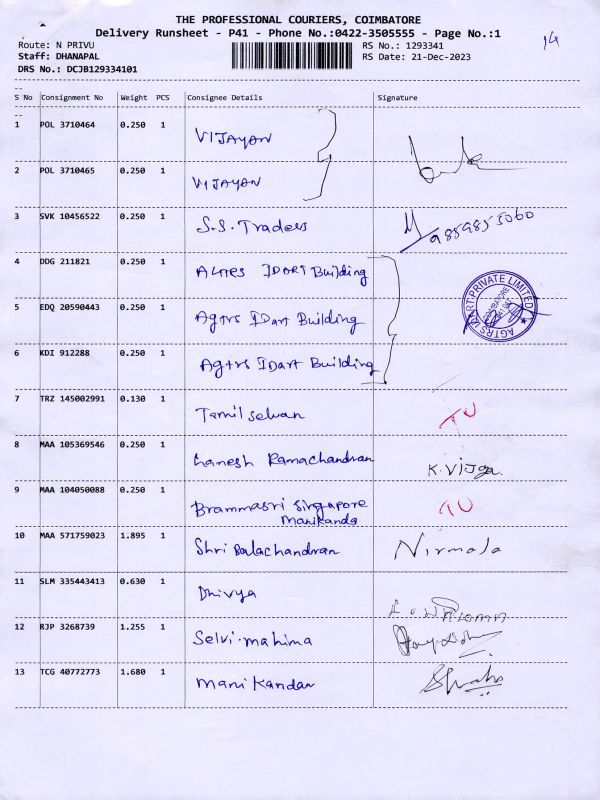 THE PROFESSIONAL COURIERS, COIMBATORE
Delivery Runsheet - P41 - Phone No.:0422-3505555 - Page No.:1
Route: N PRIVU RS No.: 1293341 14
Staff: DHANAPAL RS Date: 21-Dec-2023
DRS No.: DCJB129334101
S No Consignment No Weight PCS Consignee Details Signature
1 POL 3710464 0.250 1 VIJAYAN
2 POL 3710465 0.250 1 VIJAYAN
3 SVK 10456522 0.250 1 S.S. Traders 9859855060
4 DDG 211821 0.250 1 IDART Building
5 EDQ 20590443 0.250 1 Agtrs IDart Building
AGTRS MART PRIVATE LIMITED
COIMBATORE
6 KDI 912288 0.250 1 Agtrs IDart Building
7 TRZ 145002991 0.130 1 Tamilselvan TU
8 MAA 105369546 0.250 1 Ganesh Ramachandran K. Vijga.
9 MAA 104050088 0.250 1 Brammasri Singapore TU
Manikanda
10 MAA 571759023 1.895 1 Shri Balachandran Nirmala
11 SLM 335443413 0.630 1 Dhivya
12 RJP 3268739 1.255 1 Selvi.mahima
13 TCG 40772773 1.680 1 Mani Kandan